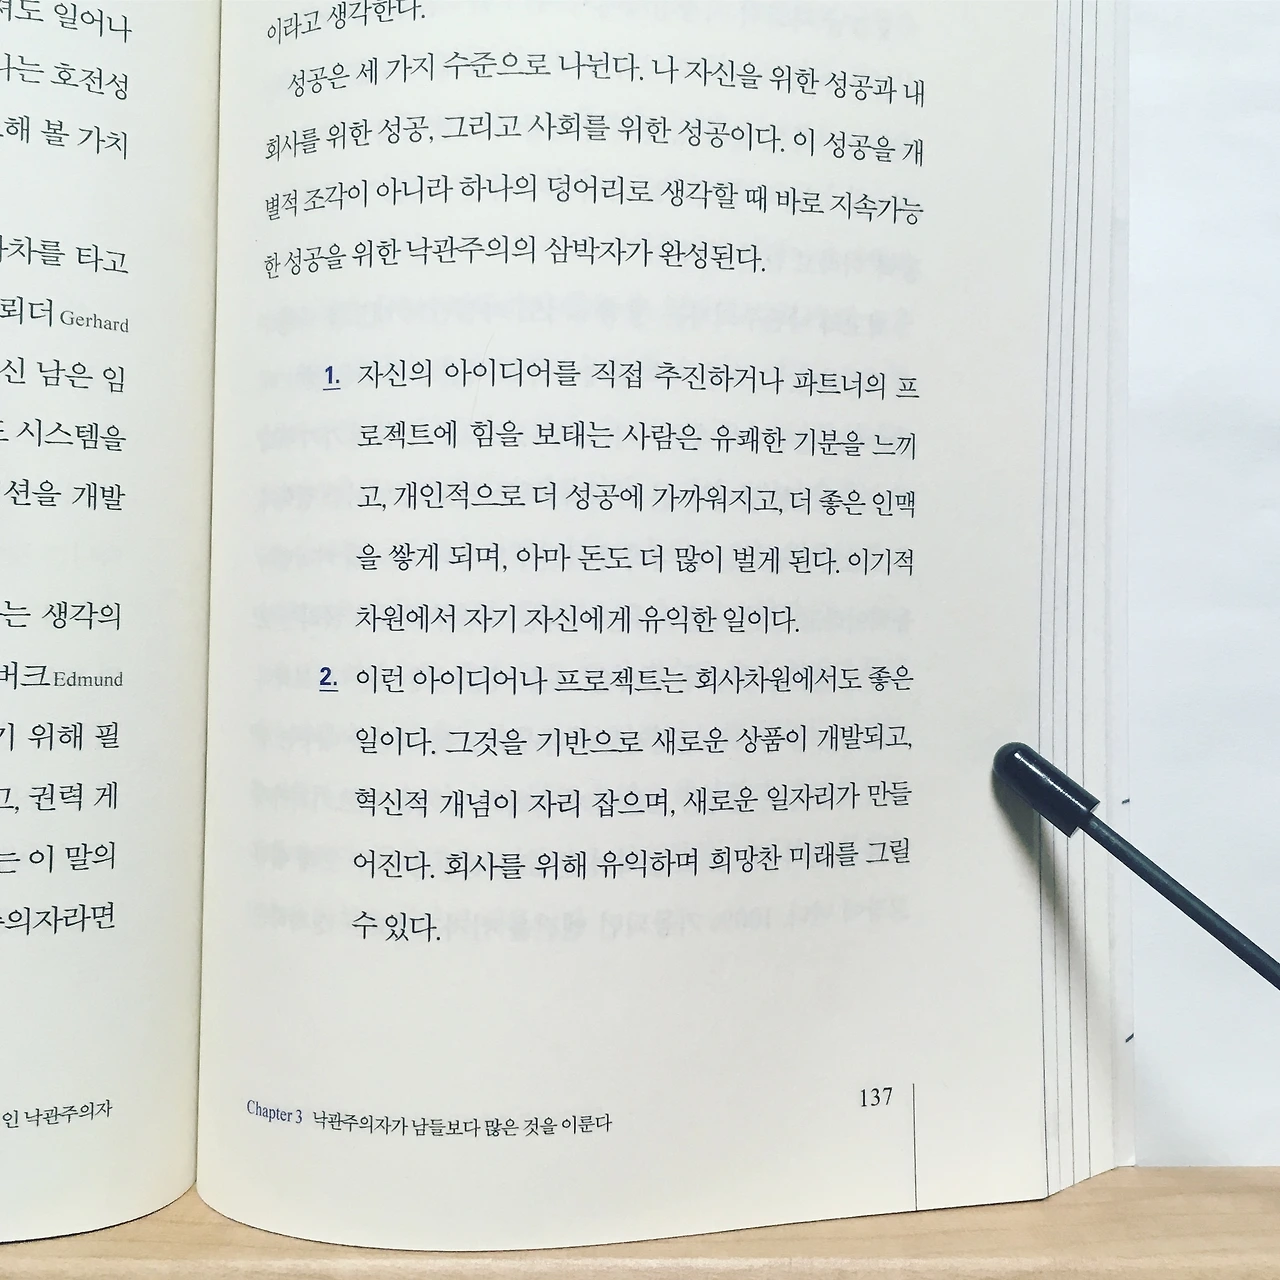 져도 일어나
나는 호전성
해 볼 가치
차를 타고
뢰더 Gerhard
신 남은 임
시스템을
션을 개발
는 생각의
버크 Edmund
기 위해 필
고, 권력 게
는 이 말의
의자라면
인 낙관주의자
이라고 생각한다.
성공은 세 가지 수준으로 나뉜다. 나 자신을 위한 성공과 내
회사를 위한 성공, 그리고 사회를 위한 성공이다. 이 성공을 개
별적 조각이 아니라 하나의 덩어리로 생각할 때 바로 지속가능
한 성공을 위한 낙관주의의 삼박자가 완성된다.
1. 자신의 아이디어를 직접 추진하거나 파트너의 프
로젝트에 힘을 보태는 사람은 유쾌한 기분을 느끼
고, 개인적으로 더 성공에 가까워지고, 더 좋은 인맥
을 쌓게 되며, 아마 돈도 더 많이 벌게 된다. 이기적
차원에서 자기 자신에게 유익한 일이다.
2. 이런 아이디어나 프로젝트는 회사차원에서도 좋은
일이다. 그것을 기반으로 새로운 상품이 개발되고,
혁신적 개념이 자리 잡으며, 새로운 일자리가 만들
어진다. 회사를 위해 유익하며 희망찬 미래를 그릴
수 있다.
Chapter 3 낙관주의자가 남들보다 많은 것을 이룬다
137